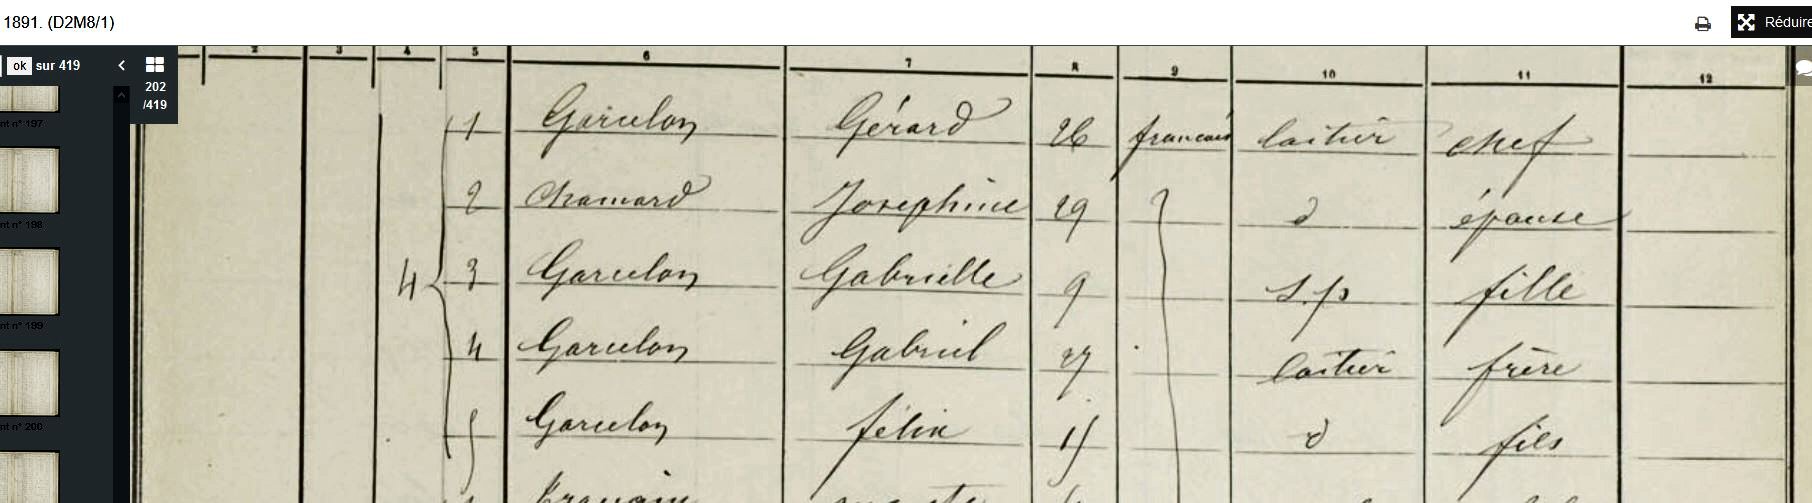 1891. (D2M8/1)
Réduire
ok sur 419
202
/419
2 3 4 5 6 7 8 9 10 11 12
1 Garcelon Gérard 26 francais laitier chef
2 Chamard Josephine 29 d épouse
4 3 Garcelon Gabrielle 9 s.p fille
4 Garcelon Gabriel 27 laitier frère
5 Garcelon félix 15 d fils
nt n° 197
nt n° 198
nt n° 199
nt n° 200